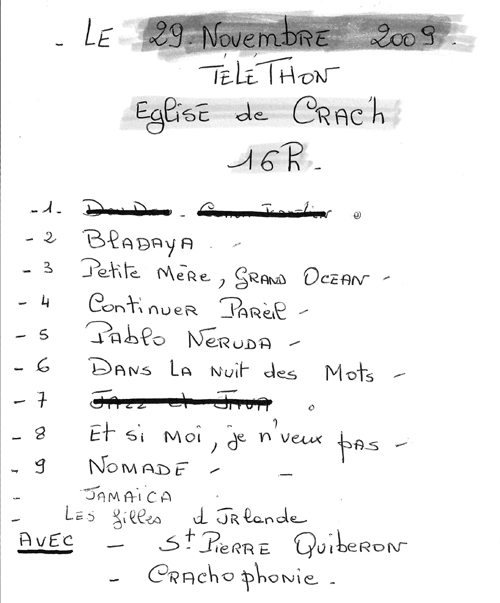 - LE 29 NOVEMBRE 2009.
TÉLÉTHON
EGLISE de CRAC'h
16h.
-1-
- 2 BLADAYA -
- 3 Petite MÈRE, GRAND OCEAN -
- 4 CONTINUER PAREIL -
- 5 PABLO NERUDA -
- 6 DANS LA NUIT des MOTS -
- 7 JAZZ et JAVA
- 8 Et si MOI, je n'veux pas -
- 9 NOMADE - -
- JAMAÏCA
- Les filles d'IRlande
AVEC - St PIERRE QUIBERON
- CRACHOPHONIE.